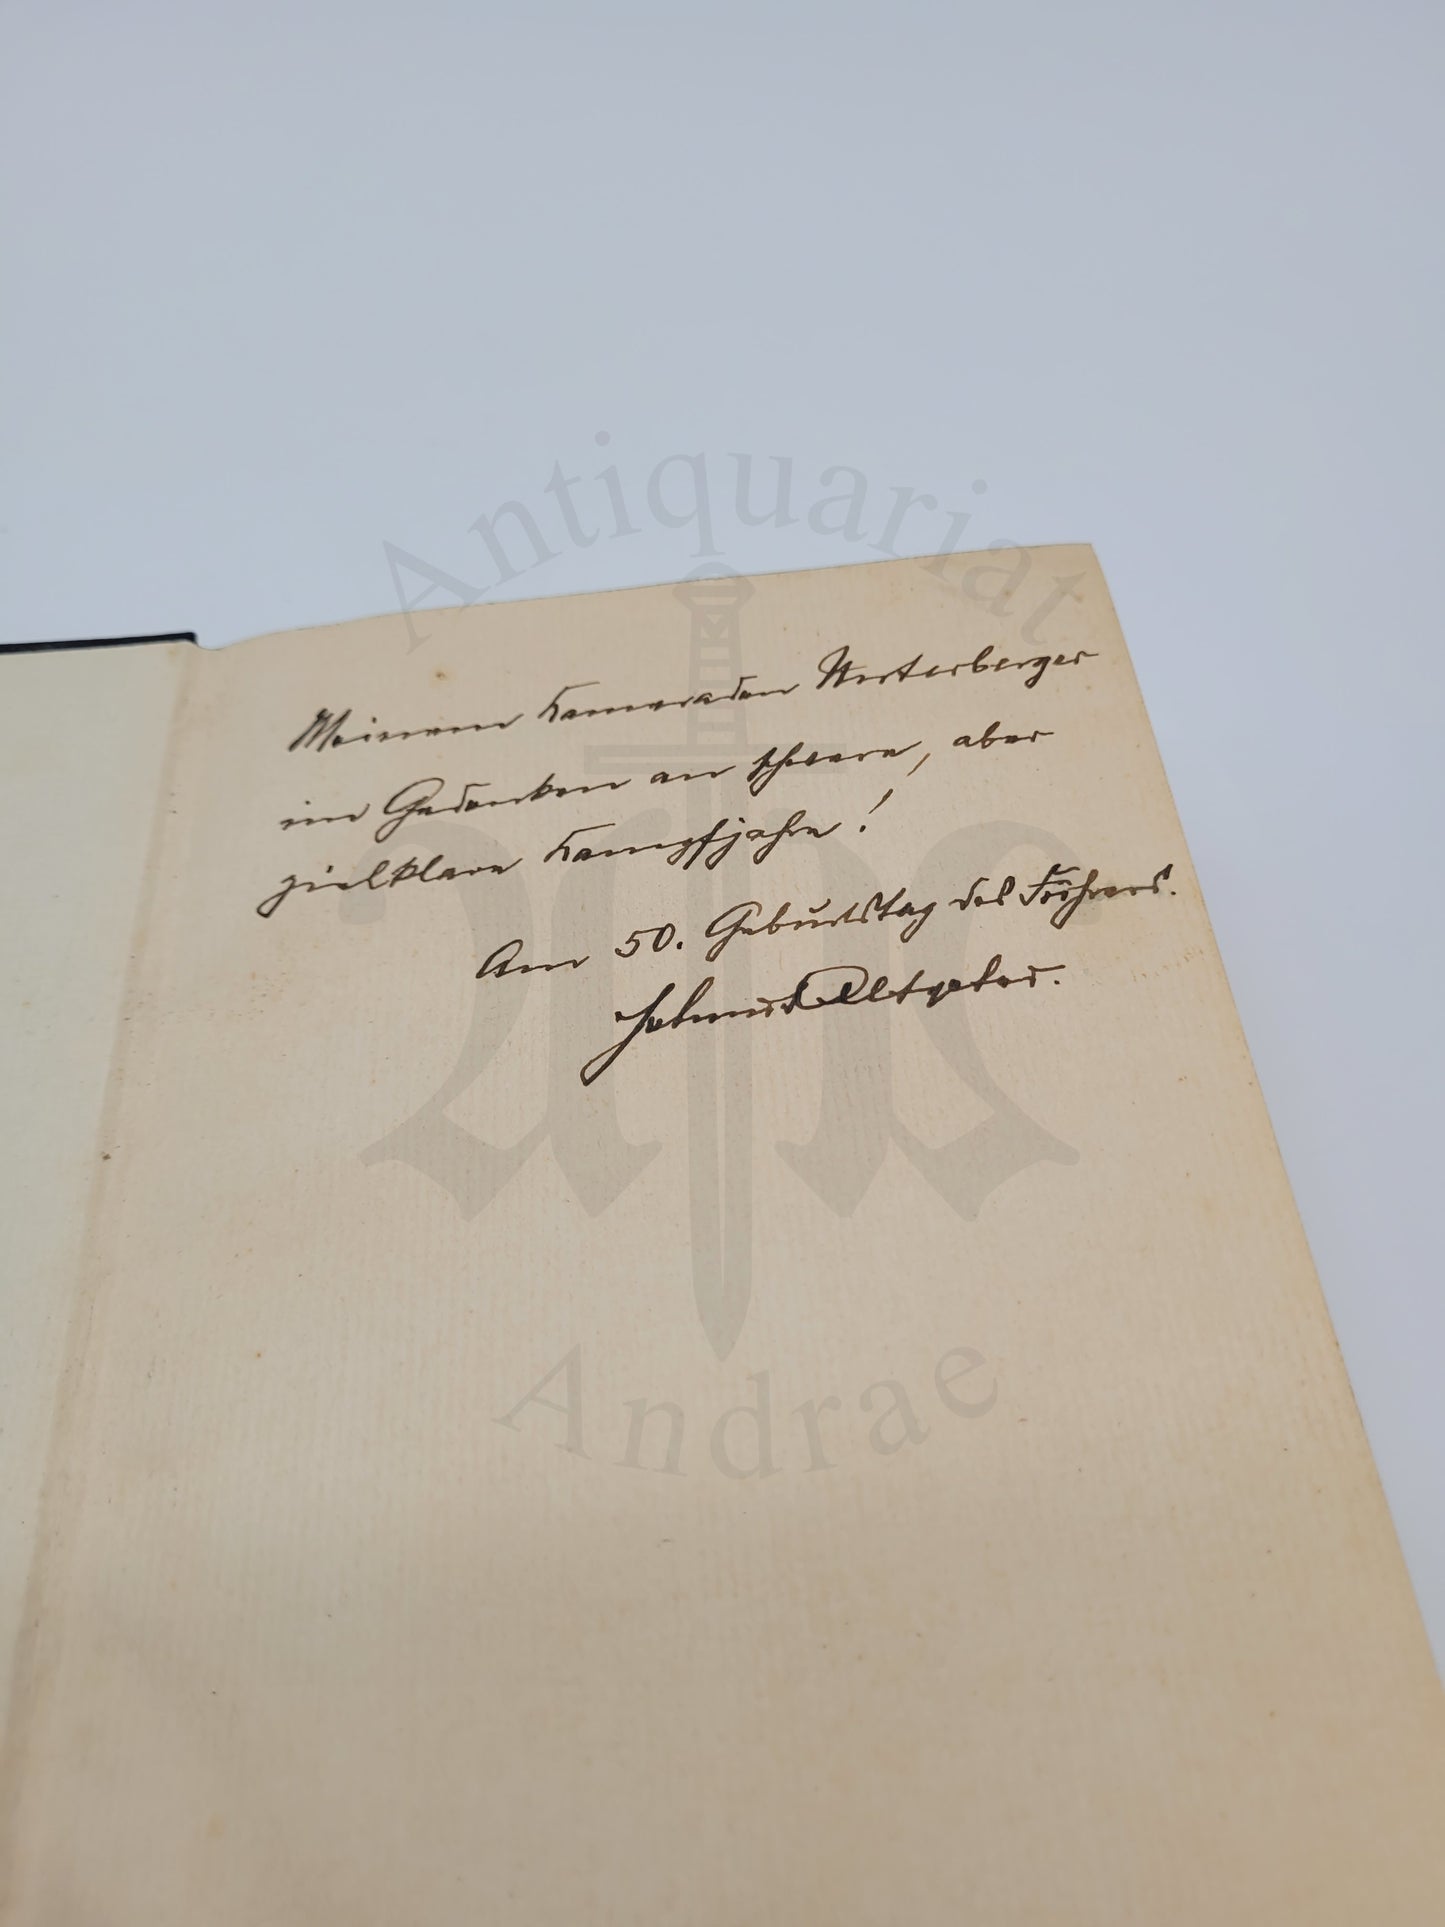 Antiquariat
Meinem Kameraden
im Gedenken an schwere, aber
zielklare Kampfjahre!
Am 50. Geburtstag des Führers.
Helmut
Andrae